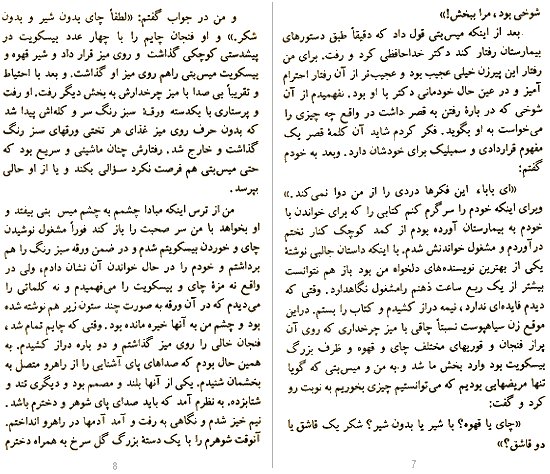 شوخی بود، مرا ببخش!»
بعد از اینکه میس‌بتی قول داد که دقیقاً طبق دستورهای
بیمارستان رفتار کند دکتر خداحافظی کرد و رفت. برای من
رفتار این پیرزن خیلی عجیب بود و عجیب‌تر از آن رفتار احترام
آمیز و در عین حال خودمانی دکتر با او بود. نفهمیدم از آن
شوخی که در بارهٔ رفتن به قصر داشت در واقع چه چیزی را
می‌خواست به او بگوید. فکر کردم شاید آن کلمهٔ قصر یک
مفهوم قراردادی و سمبلیک برای خودشان دارد. وبعد به خودم
گفتم:
«ای بابا، این فکرها دردی را از من دوا نمی‌کند.»
وبرای اینکه خودم را سرگرم کنم کتابی را که برای خواندن با
خودم به بیمارستان آورده بودم از کمد کوچک کنار تختم
درآوردم و مشغول خواندنش شدم. با اینکه داستان جالبی نوشتهٔ
یکی از بهترین نویسنده‌های دلخواه من بود باز هم نتوانست
بیشتر از یک ربع ساعت ذهنم رامشغول نگاهدارد. وقتی که
دیدم فایده‌ای ندارد، نیمه دراز کشیدم و کتاب را بستم. دراین
موقع زن سیاهپوست نسبتاً چاقی با میز چرخداری که روی آن
پراز فنجان و قوریهای مختلف چای و قهوه و ظرف بزرگ
بیسکویت بود وارد بخش ما شد و به من و میس‌بتی که گویا
تنها مریضهایی بودیم که می‌توانستیم چیزی بخوریم به نوبت رو
کرد و گفت:
«چای یا قهوه؟ با شیر یا بدون شیر؟ شکر یک قاشق یا
دو قاشق؟»
7
و من در جواب گفتم: «لطفاً چای بدون شیر و بدون
شکر.» و او فنجان چایم را با چهار عدد بیسکویت در
پیشدستی کوچکی گذاشت و روی میز قرار داد و شیر قهوه و
بیسکویت میس‌بتی راهم روی میز او گذاشت. و بعد با احتیاط
و تقریباً بی صدا با میز چرخدارش به بخش دیگر رفت. او رفت
و پرستاری با یکدسته ورقهٔ سبز رنگ سر و کله‌اش پیدا شد
که بدون حرف روی میز غذای هر تختی ورقهای سبز رنگ
گذاشت و خارج شد. رفتارش چنان ماشینی و سریع بود که
حتی میس‌بتی هم فرصت نکرد سؤالی بکند و یا از او حالی
بپرسد.
من از ترس اینکه مبادا چشمم به چشم میس بتی بیفتد و
او بخواهد با من سر صحبت را باز کند فوراً مشغول نوشیدن
چای و خوردن بیسکویتم شدم و در ضمن ورقه سبز رنگ را هم
برداشتم و خودم را در حال خواندن آن نشان دادم، ولی در
واقع نه مزهٔ چای و بیسکویت را می‌فهمیدم و نه کلماتی را
می‌دیدم که در آن ورقه به صورت چند ستون زیر هم نوشته شده
بود و چشم من به آنها خیره مانده بود. وقتی که چایم تمام شد،
فنجان خالی را روی میز گذاشتم و دو باره دراز کشیدم. به
همین حال بودم که صداهای پای آشنایی را از راهرو متصل به
بخشمان شنیدم. یکی از آنها بلند و مصمم بود و دیگری تند و
شتابزده. به نظرم آمد که باید صدای پای شوهر و دخترم باشد.
نیم خیز شدم و نگاهی به رفت و آمد آدمها در راهرو انداختم.
آنوقت شوهرم را با یک دستهٔ بزرگ گل سرخ به همراه دخترم
8